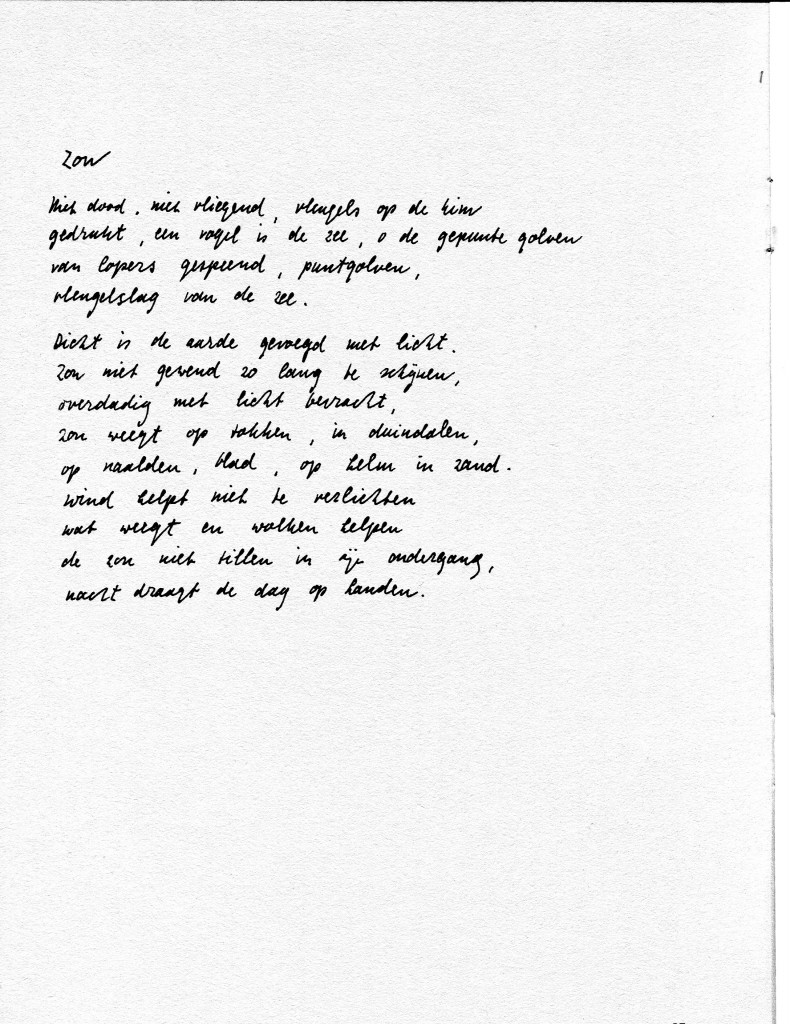 Zon
Niet dood, niet vliegend, vleugels op de kim
gedrukt, een vogel is de zee, o de gepunte golven
van lopers gespeend, puntgolven,
vleugelslag van de zee.
Dicht is de aarde gevoegd met licht.
Zon niet gewend zo lang te schijnen,
overdadig met licht bevracht,
zon weegt op takken, in duindalen,
op naalden, blad, op helm in zand.
Wind helpt niet te verlichten
wat weegt en wolken helpen
de zon niet tillen in zijn ondergang,
nacht draagt de dag op handen.